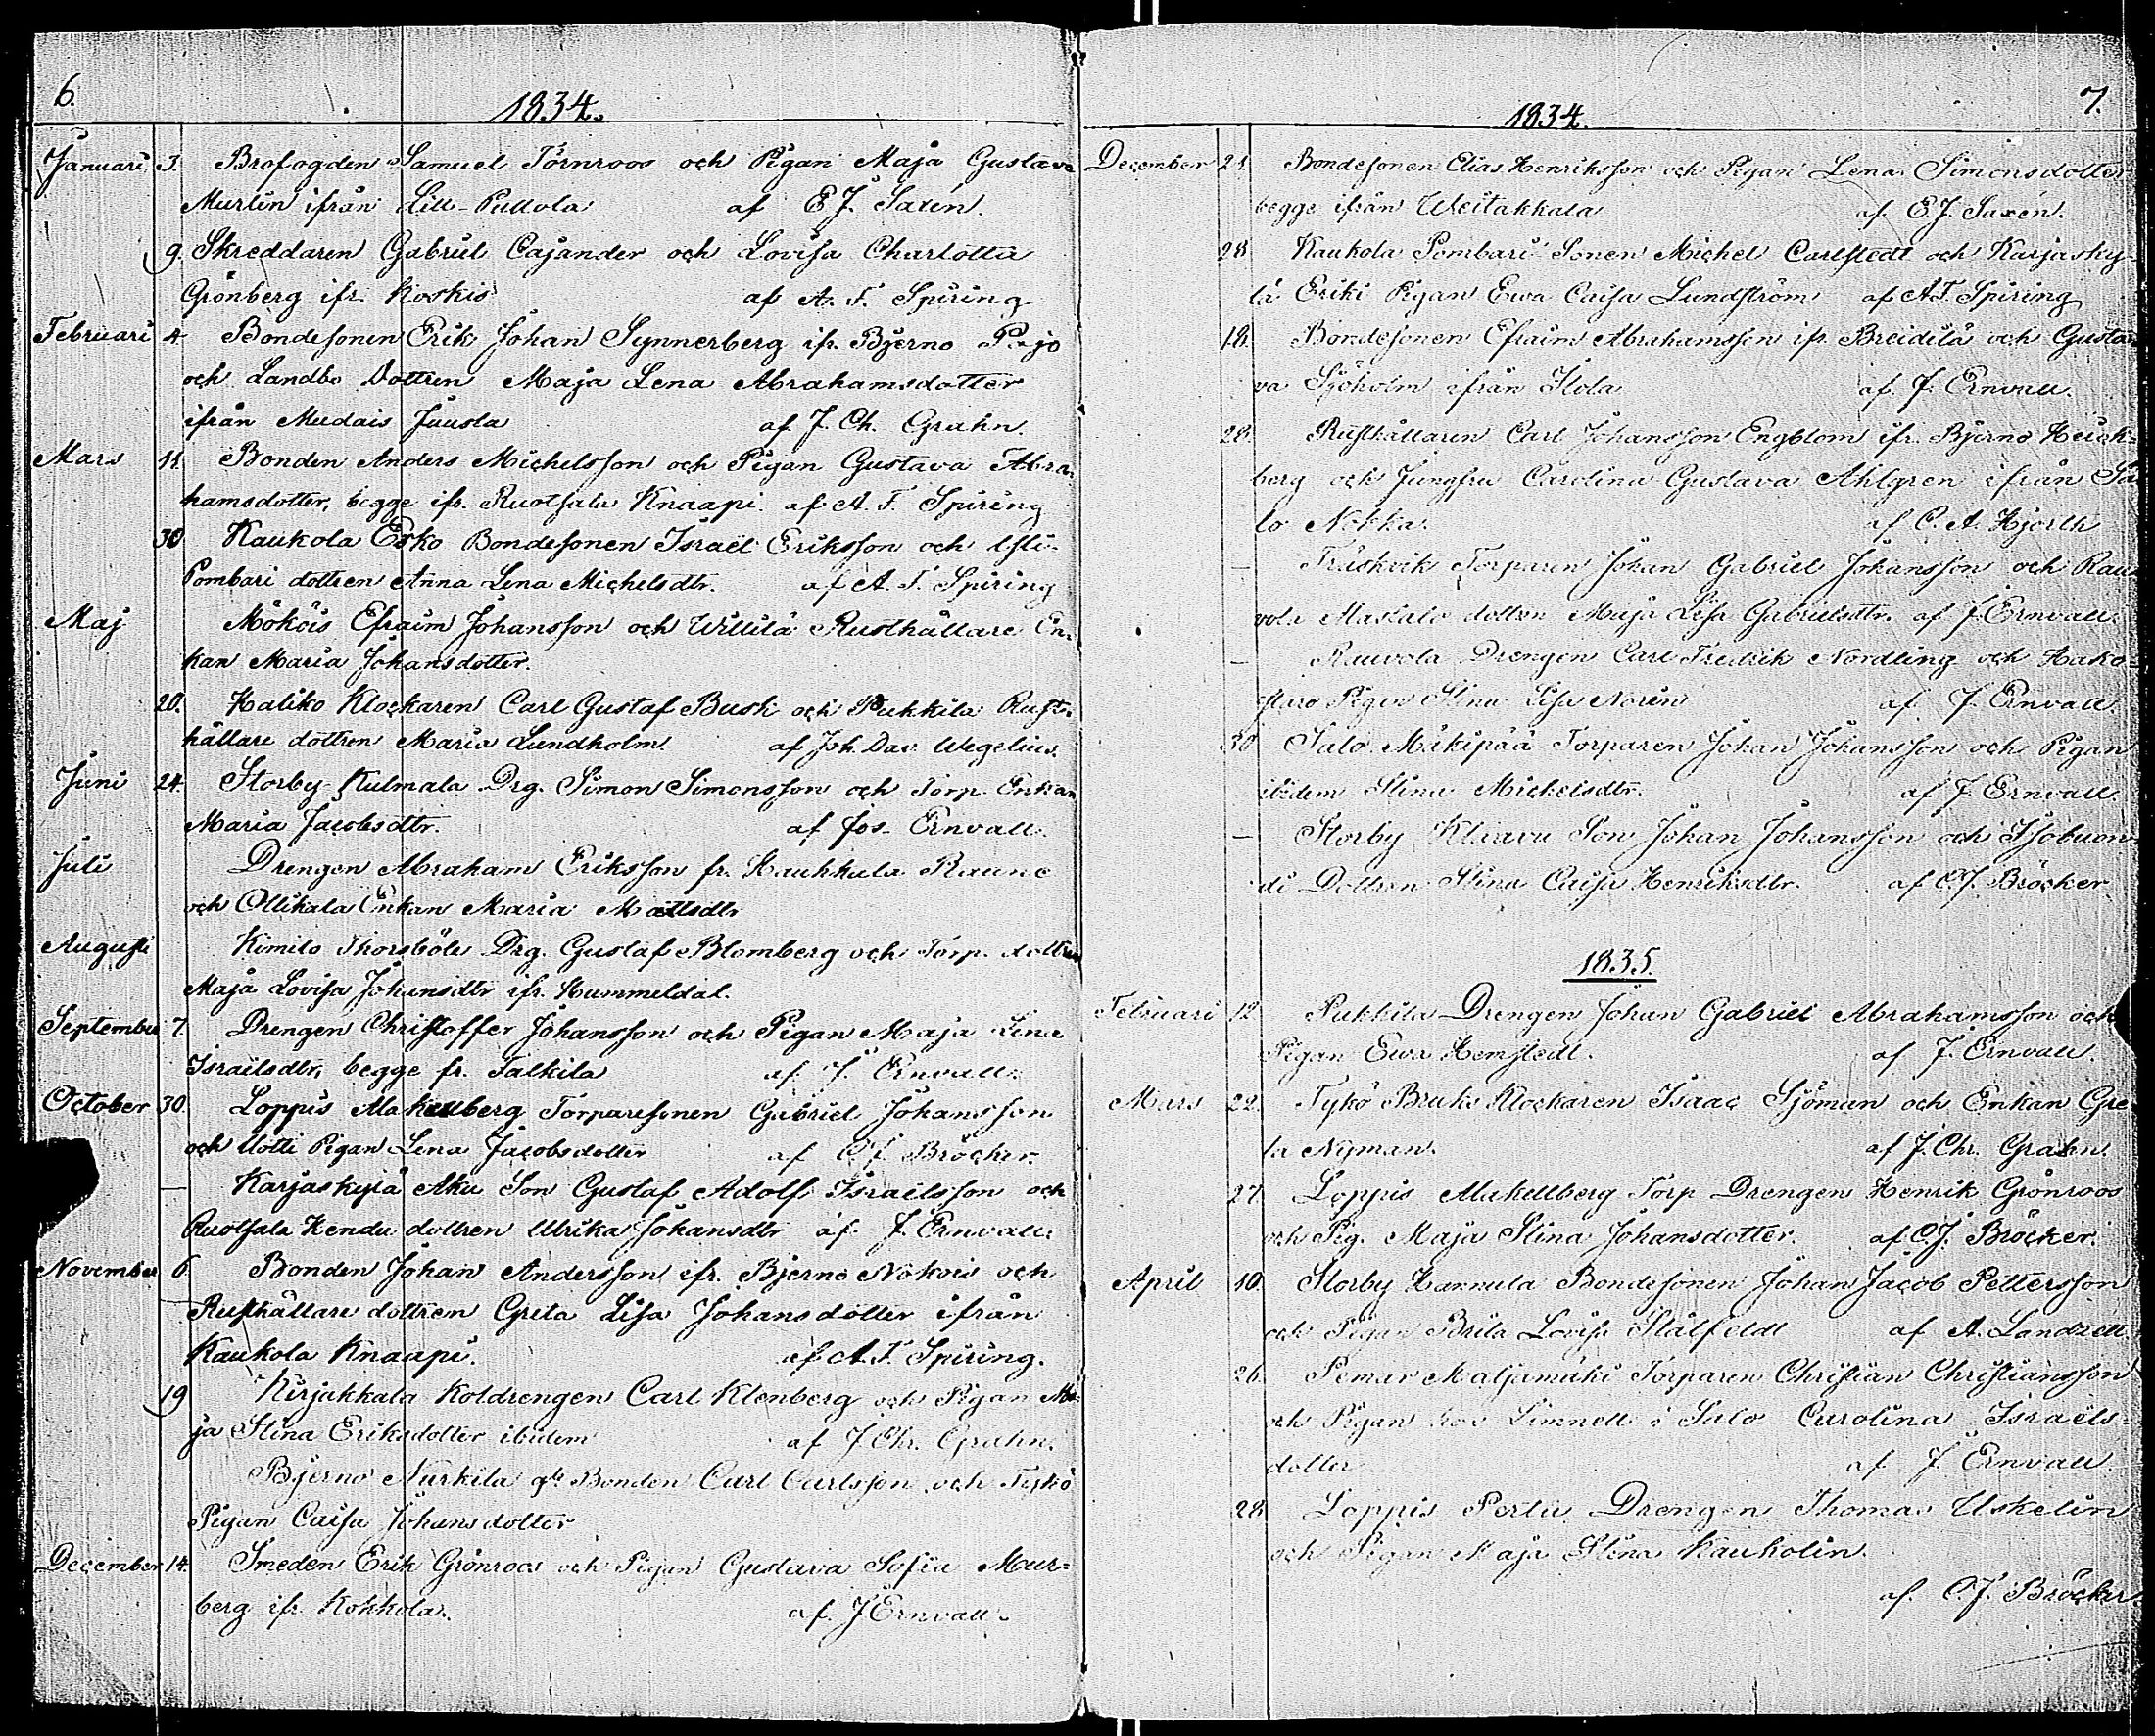 6.
1834.
Januari 3. Brofogden Samuel Törnroos och Pigan Maja Gustava
Murlin ifrån Lill-Pullola af E.J. Saxén.
9. Skreddaren Gabriel Cajander och Lovisa Charlotta
Grönberg ifr. Koskis af A. F. Spiring
Februari 4. Bondesonen Erik Johan Synnerberg ifr. Bjerno Pajo
och Landbo Dottren Maja Lena Abrahamsdotter
ifrån Mudais Juusla af J. Ch. Grahn.
Mars 11. Bonden Anders Michelsson och Pigan Gustava Abra-
hamsdotter, begge ifr. Ruotsala Knaapi. af A. F. Spiring
30 Kaukola Esko Bondesonen Israel Eriksson och
Pombari dottren Anna Lena Michelsdtr. af A. F. Spiring
Maj Mököis Efraim Johansson och Willilä Rusthållare En-
kan Maria Johansdotter.
20. Haliko Klockaren Carl Gustaf Bush och Pukkila Rust-
hållare dottren Maria Lundholm. af Joh. Dav. Wegelius.
Juni 24. Storby-Kulmala Drg. Simon Simonsson och Torp. Enkan
Maria Jacobsdtr. af Jos. Ernvall.
Juli Drengen Abraham Eriksson fr. Haukkala Raune
och Ollikala Enkan Maria Mattsdtr
Augusti Kimito Thorsböle Drg. Gustaf Blomberg och Torp. dottren
Maja Lovisa Johansdtr ifr. Hummeldal.
September 7. Drengen Christoffer Johansson och Pigan Maja Lena
Israelsdtr, begge fr. Talkila af J. Ernvall.
October 30. Loppis Makellberg Torparesonen Gabriel Johansson
och Uotti Pigan Lena Jacobsdotter af C.J. Bröcker.
— Karjaskylä Aku Son Gustaf Adolf Israelsson och
Ruotsala Hendu dottren Ulrika Johansdtr af J. Ernvall.
November 6. Bonden Johan Andersson ifr. Bjerno Nokois och
Rusthållare dottren Greta Lisa Johansdotter ifrån
Kaukola Knaapi. af A. F. Spiring.
19 Kirjakkala Koldrengen Carl Klenberg och Pigan Ma-
ja Stina Eriksdotter ibidem af J Chr. Grahn.
Bjerno Nurkila Bonden Carl Carlsson och Tykö
Pigan Caisa Johansdotter
December 14. Smeden Erik Grönroos och Pigan Gustava Sofia Mur-
berg ifr. Kokkola. af. J Ernvall.
7.
1834.
December 21. Bondesonen Elias Henriksson och Pigan Lena Simonsdotter
begge ifrån Weitakkala af E.J. Saxén.
28 Kaukola Pombari Sonen Michel Carlstedt och Karjasky-
lä Eriki Pigan Ewa Caisa Lundström af A.F. Spiring
18. Bondesonen Efraim Abrahamsson ifr. Breidilä och Gusta-
va Sjöholm ifrån Isola af. J. Ernvall.
28. Rusthållaren Carl Johansson Engblom ifr. Bjerno
berg och Jungfru Carolina Gustava Ahlgren ifrån Sa-
lo Nokka. af C. A. Hjorth
— Träskvik Torparen Johan Gabriel Johansson och Rau-
vola Mastalo dottren Maja Lisa Gabrielsdtr. af J Ernvall.
— Rauvola Drengen Carl Fredrik Nordling och Hako-
staro Pigan Stina Lisa Norén af J. Ernvall.
30 Salo Mäkipää Torparen Johan Johansson och Pigan
ibidem Stina Michelsdtr. af J Ernvall.
— Storby Klaavu Son Johan Johansson och Isobuon-
di Dottren Stina Caisa Henriksdtr. af C.J. Bröcker
1835.
Februari 12 Pukkila Drengen Johan Gabriel Abrahamsson och
Pigan Ewa Hemstedt. af J. Ernvall.
Mars 22. Tykö Bruks Klockaren Isaac Sjöman och Enkan Gre-
ta Nyman. af J. Chr. Grahn.
27. Loppis Makellberg Torp Drengen Henrik Grönroos
och Pig. Maja Stina Johansdotter. af C.J. Bröcker.
April 10. Storby Hannula Bondesonen Johan Jacob Pettersson
och Pigan Brita Lovisa Stålfeldt af A. Landzell
26. Pemar Maljamäki Torparen Christian Christiansson
och Pigan hos Limnell i Salo Carolina Israels-
dotter af J Ernvall.
28 Loppis Pertu Drengen Thomas Uskelin
och Pigan Maja Stina Kaukolin.
af. C.J. Bröcker.